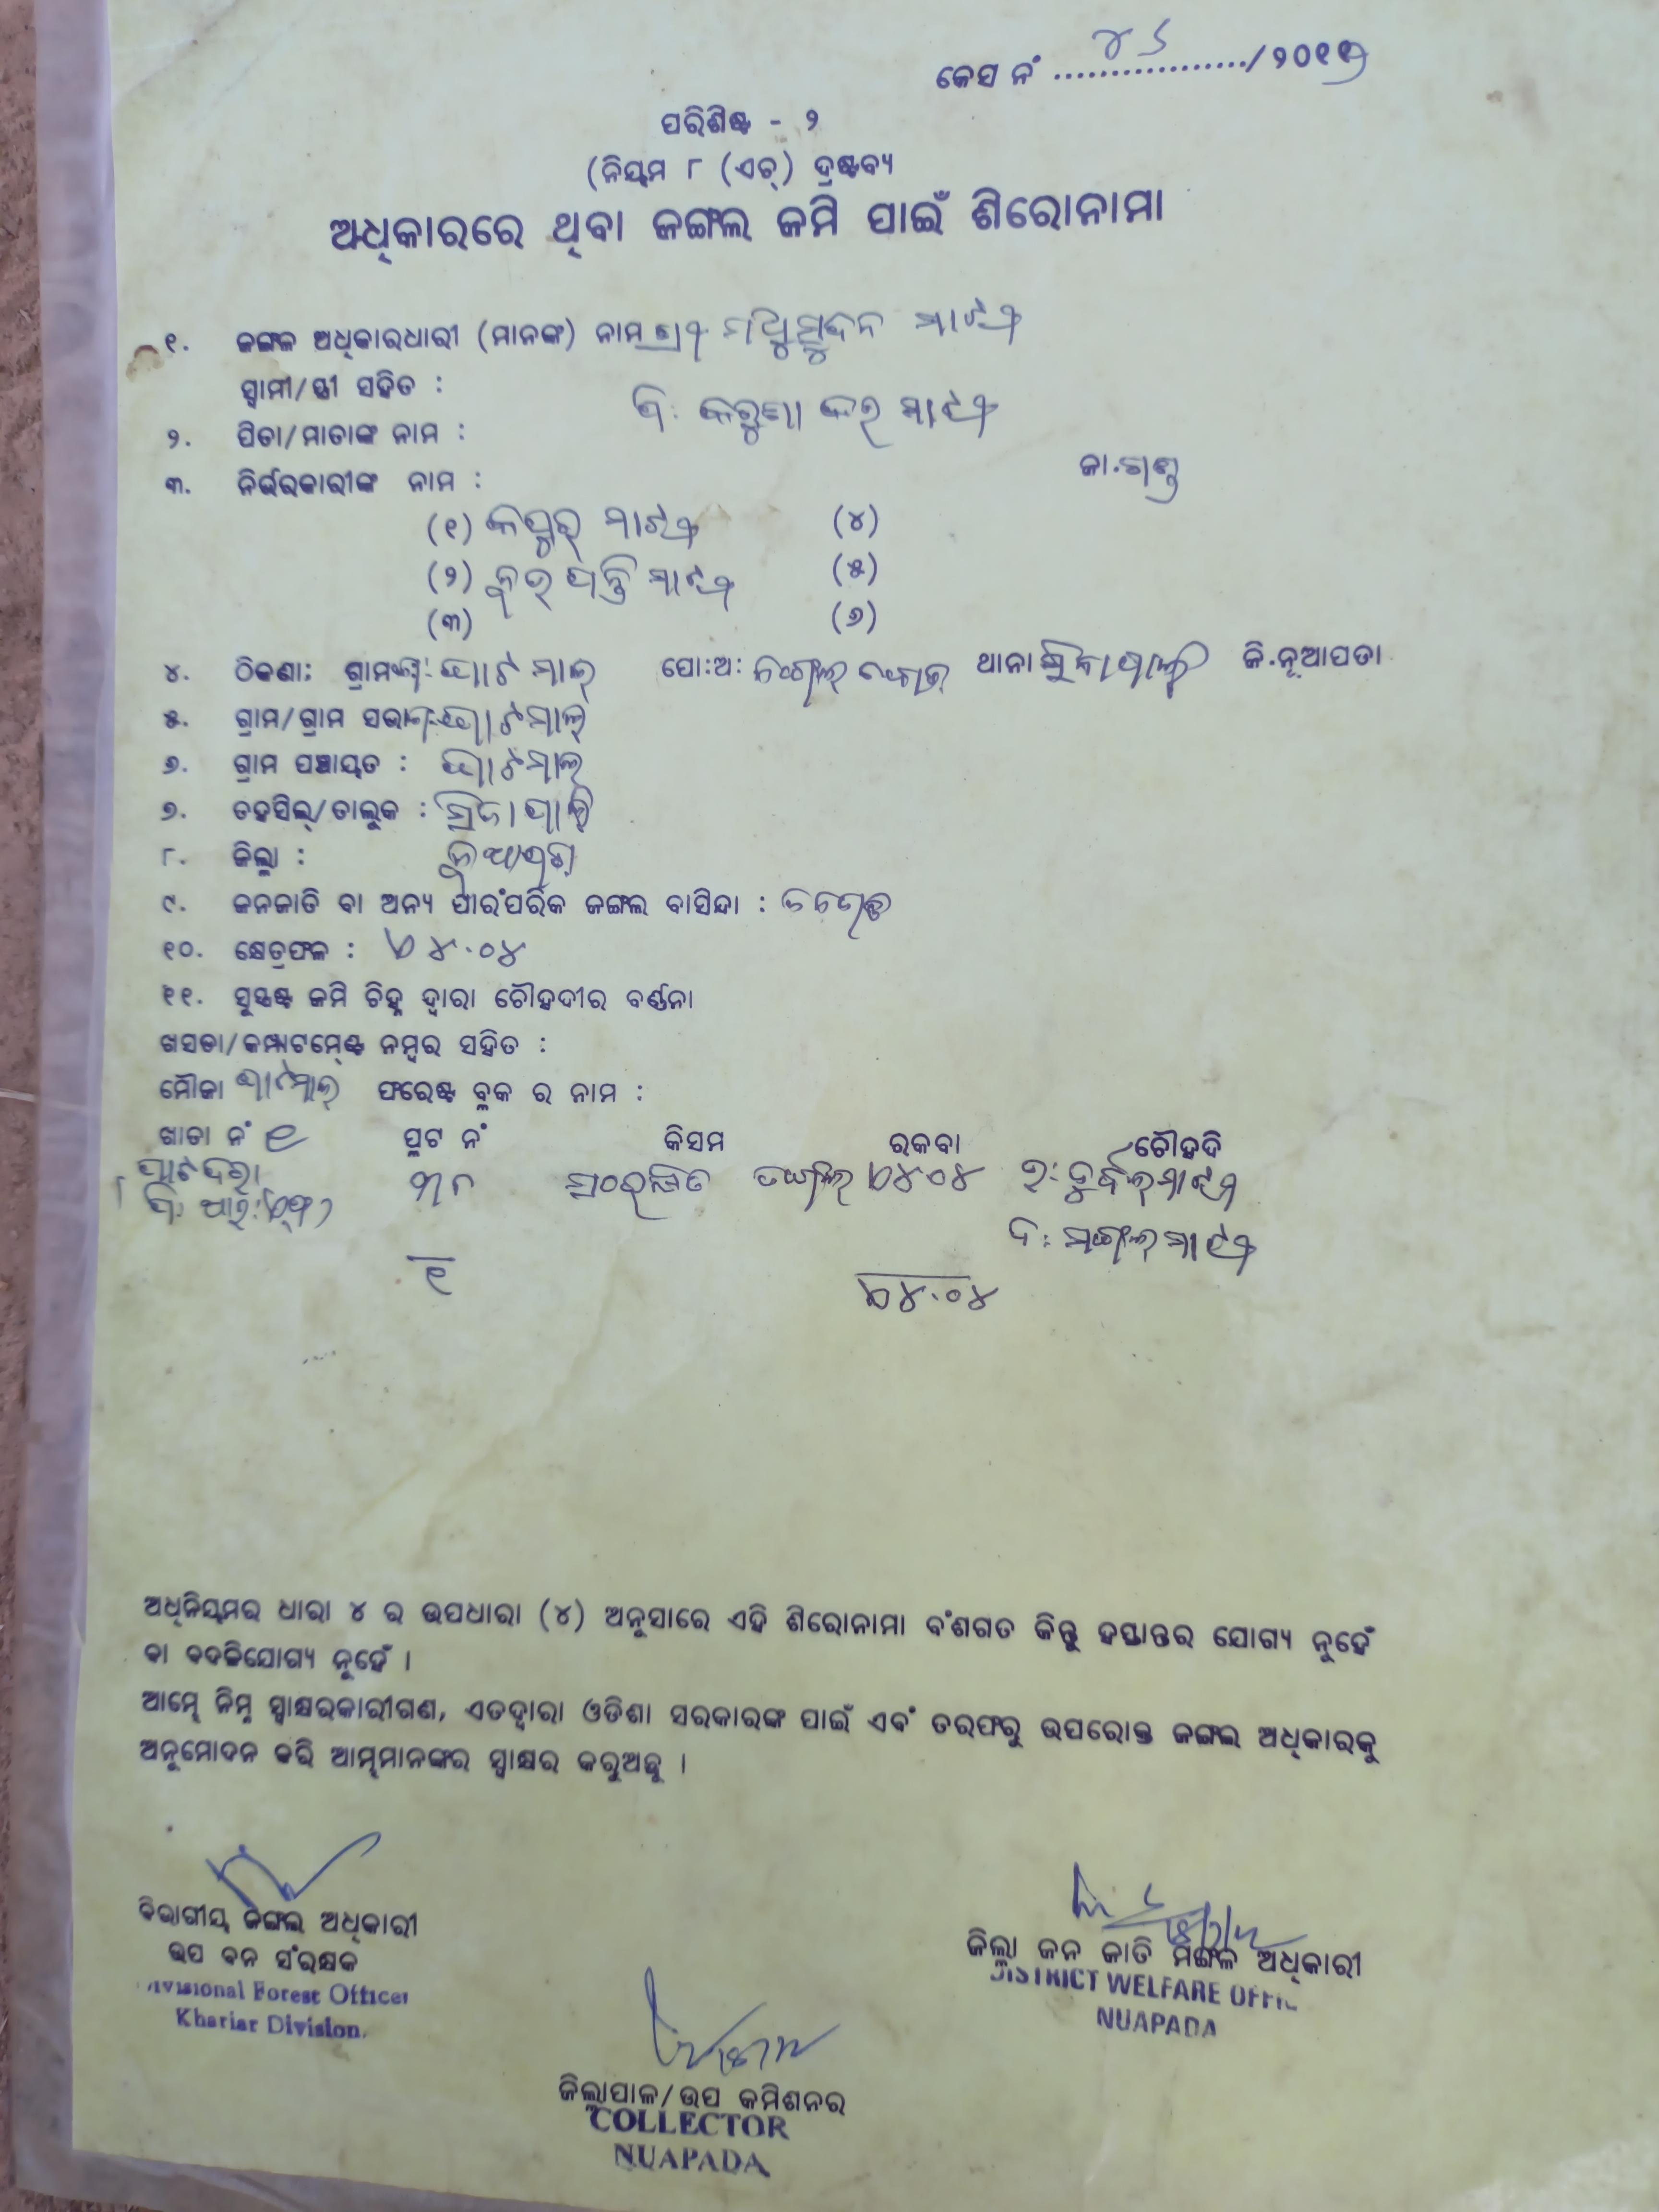 କେସ ନଂ ................./ ୨୦୧୧
ପରିଶିଷ୍ଟ - ୨
(ନିୟମ ୮ (ଏଚ୍) ଦ୍ରଷ୍ଟବ୍ୟ
ଅଧିକାରରେ ଥିବା ଜଙ୍ଗଲ ଜମି ପାଇଁ ଶିରୋନାମା
୧. ଜଙ୍ଗଳ ଅଧିକାରଧାରୀ (ମାନଙ୍କ) ନାମ ଶ୍ରୀ ମଧୁସୁଦନ ମାଝୀ
ସ୍ୱାମୀ/ସ୍ତ୍ରୀ ସହିତ :
ପି: କରୁଣା କର ମାଝୀ
୨. ପିତା/ମାତାଙ୍କ ନାମ :
ଜା.ଗଣ୍ଡ
୩. ନିର୍ଭରକାରୀଙ୍କ ନାମ :
(୧) କପୁର ମାଝୀ (୪)
(୨) ମାଝୀ (୫)
(୩) (୬)
୪. ଠିକଣା: ଗ୍ରାମ ଘାଟମାଲ୍ ପୋ:ଅ: ଥାନା ସିନାପାଲି ଜି.ନୂଆପଡା
୫. ଗ୍ରାମ/ଗ୍ରାମ ସଭା ଘାଟମାଲ୍
୬. ଗ୍ରାମ ପଞ୍ଚାୟତ : ଘାଟମାଲ୍
୭. ତହସିଲ୍/ତାଲୁକ : ସିନାପାଲି
୮. ଜିଲ୍ଲା : ନୂଆପଡା
୯. ଜନଜାତି ବା ଅନ୍ୟ ପାରଂପରିକ ଜଙ୍ଗଲ ବାସିନ୍ଦା :
୧୦. କ୍ଷେତ୍ରଫଳ : ୭୪.୦୪
୧୧. ସୁସ୍ପଷ୍ଟ ଜମି ଚିହ୍ନ ଦ୍ୱାରା ଚୌହଦୀର ବର୍ଣ୍ଣନା
ଖସଡା/କମ୍ପାଟମେଣ୍ଟ ନମ୍ବର ସହିତ :
ମୌଜା ଘାଟମାଲ୍ ଫରେଷ୍ଟ ବ୍ଲକ ର ନାମ :
ଖାତା ନଂ ପ୍ଲଟ ନଂ କିସମ ରକବା ଚୌହଦି
ସଂରକ୍ଷିତ ଜଙ୍ଗଲ ୭୪.୦୪ ଉ: ଦୁର୍ବଲ ମାଝୀ
ଦ: ମଙ୍ଗଲ ମାଝୀ
୧ ୭୪.୦୪
ଅଧିନିୟମର ଧାରା ୪ ର ଉପଧାରା (୪) ଅନୁସାରେ ଏହି ଶିରୋନାମା ବଂଶଗତ କିନ୍ତୁ ହସ୍ତାନ୍ତର ଯୋଗ୍ୟ ନୁହେଁ
ବା ବଦଳିଯୋଗ୍ୟ ନୁହେଁ ।
ଆମ୍ଭେ ନିମ୍ନ ସ୍ୱାକ୍ଷରକାରୀଗଣ, ଏତଦ୍ୱାରା ଓଡିଶା ସରକାରଙ୍କ ପାଇଁ ଏବଂ ତରଫରୁ ଉପରୋକ୍ତ ଜଙ୍ଗଲ ଅଧିକାରକୁ
ଅନୁମୋଦନ କରି ଆମ୍ଭମାନଙ୍କର ସ୍ୱାକ୍ଷର କରୁଅଛୁ ।
ବିଭାଗୀୟ ଜଙ୍ଗଲ ଅଧିକାରୀ
ଉପ ବନ ସଂରକ୍ଷକ
Divisional Forest Officer
Khariar Division.
ଜିଲ୍ଲା ଜନ ଜାତି ମଙ୍ଗଳ ଅଧିକାରୀ
DISTRICT WELFARE OFFIC
NUAPADA
ଜିଲ୍ଲାପାଳ/ଉପ କମିଶନର
COLLECTOR
NUAPADA